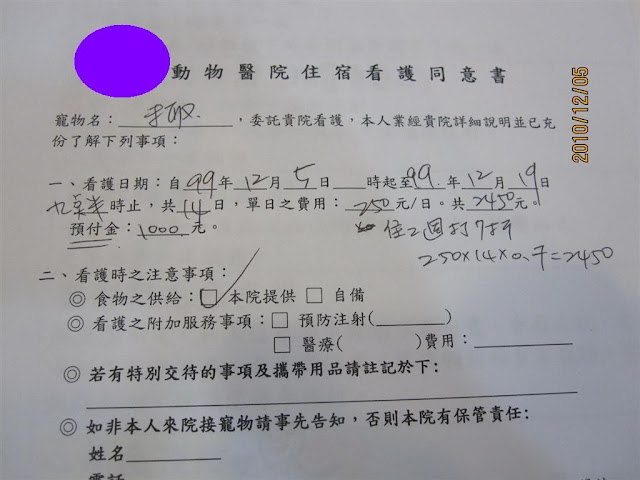 動物醫院住宿看護同意書
2010/12/05
寵物名：，委託貴院看護，本人業經貴院詳細說明並已充
份了解下列事項：
一、看護日期：自99年12月5日 時起至99.年12月19日
九點半時止，共14日，單日之費用：250元/日。共2450元。
預付金：1000元。
住2週打7折
250×14×0.7=2450
二、看護時之注意事項：
◎ 食物之供給：☑ 本院提供 □ 自備
◎ 看護之附加服務事項：□ 預防注射(________)
□ 醫療( )費用：________
◎ 若有特別交待的事項及攜帶用品請註記於下：
◎ 如非本人來院接寵物請事先告知，否則本院有保管責任：
姓名________